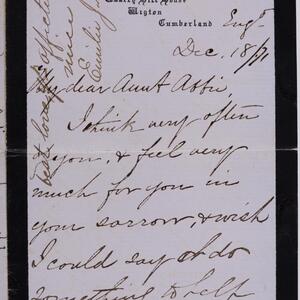 Quarry Hill House
Wigton
Cumberland Engd.
Dec. 18/91
My dear Aunt Abbie,
I think very often
of you, & feel very
much for you in
your sorrow, & wish
I could say or do
something to help
dear love
Emilie